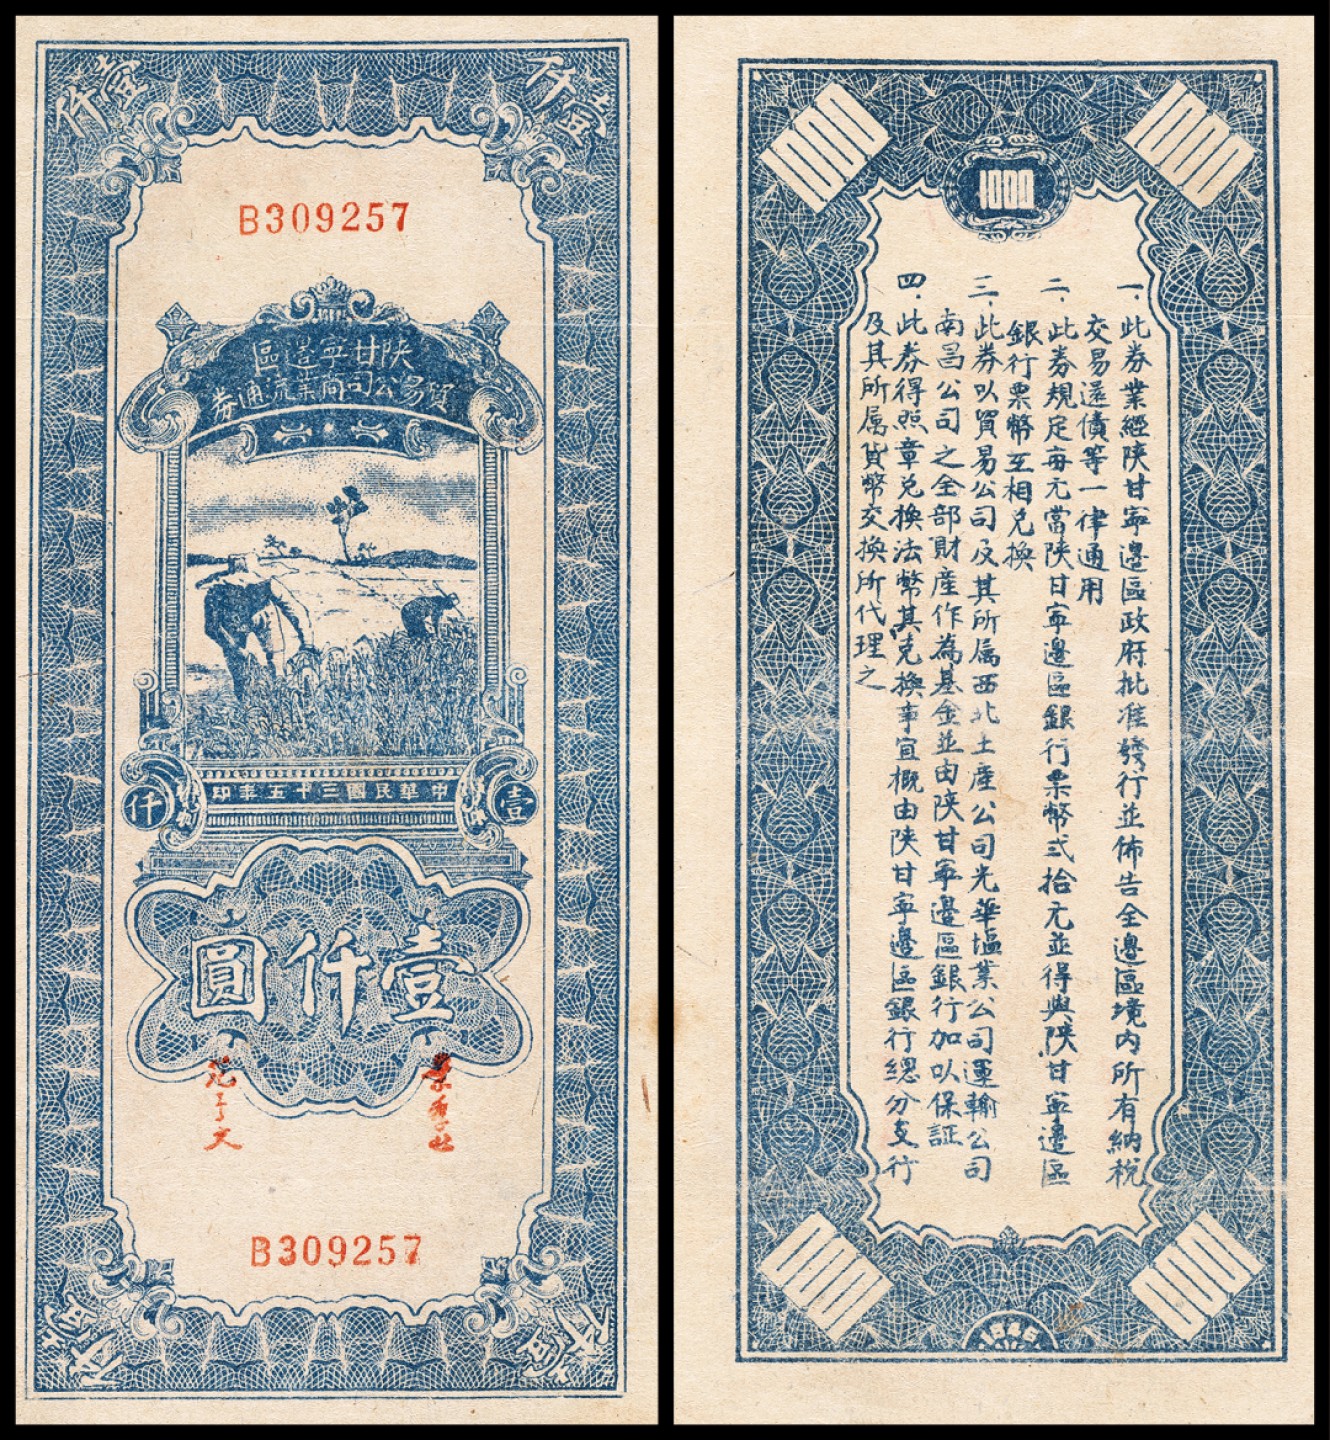 壹仟
壹仟
B309257
陝甘寧邊區
貿易公司商業流通券
中華民國三十五年印
壹
仟
壹仟圓
范子文
B309257
壹仟
壹仟
1000
1000
1000
一、此券業經陝甘寧邊區政府批准發行並佈告全邊區境内所有納稅
交易還債等一律通用
二、此券規足每元當陝甘寧邊區銀行票幣弍拾元並得與陝甘寧邊區
銀行票幣互相兑換
三、此券以貿易公司及其所属西北土產公司光華塩業公司運輸公司
南昌公司之全部財產作為基金並由陝甘寧邊區銀行加以保証
四、此券得照章兑換法幣其兑換事宜概由陝甘寧邊區銀行總分支行
及其所属貨幣交換所代理之
1000
1946
1000